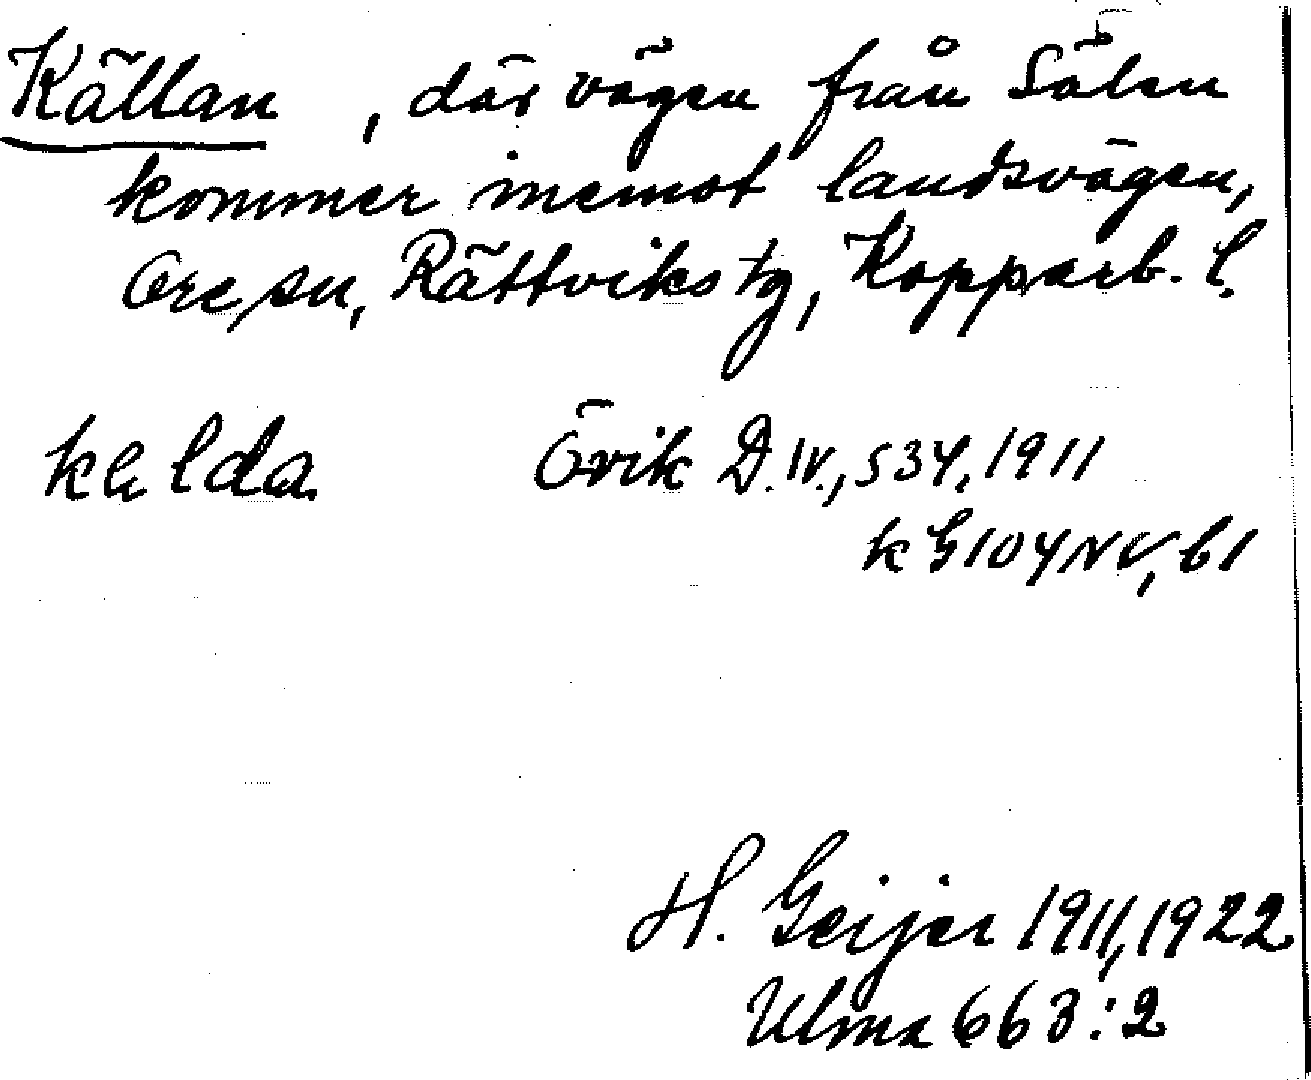 Källan, där vägen från Sälen
kommer inemot landsvägen,
Ore sn, Rättviks tg, Kopparb. l.
kelda Övik D. IV., S34, 1911
k G104NV, b1
H. Geijer 1911, 1922
Ulma 663:2